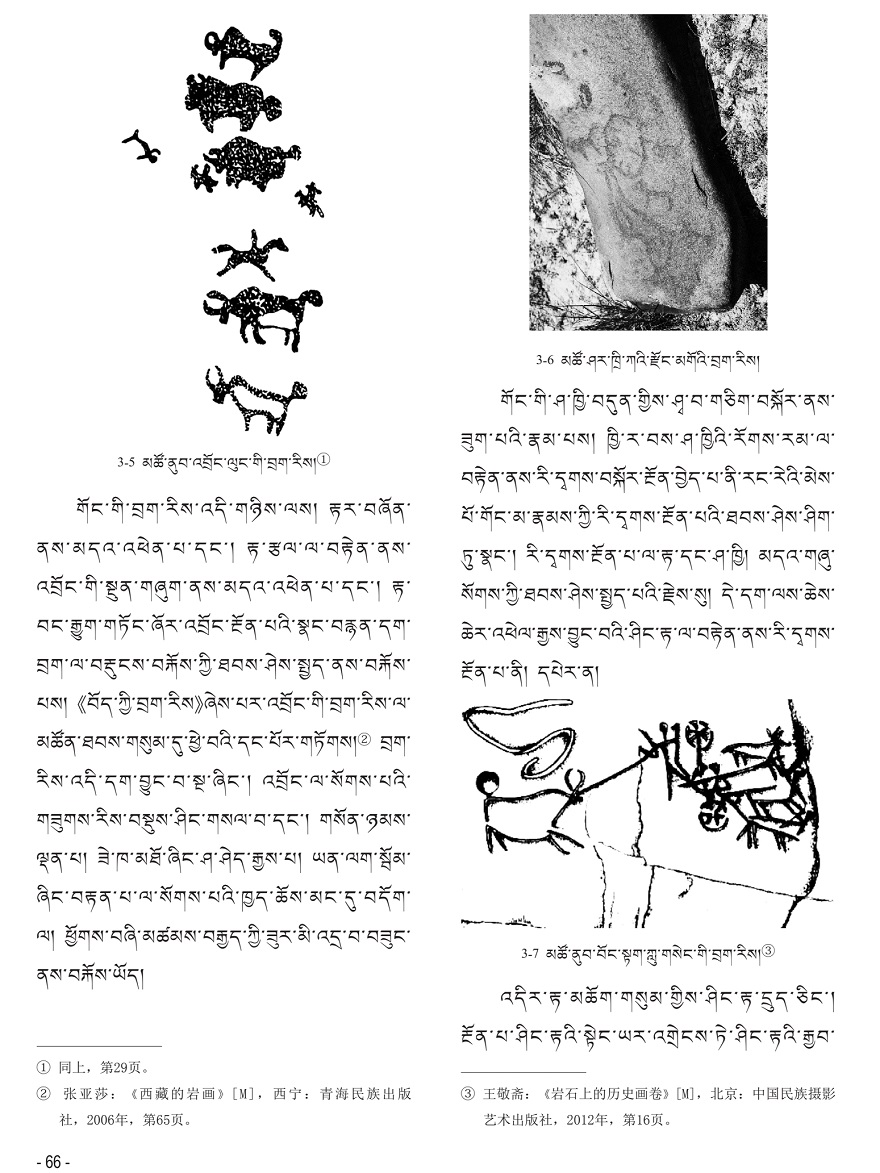 3-5 མཚོ་ནུབ་འབྲོང་ལུང་གི་བྲག་རིས།①
གོང་གི་བྲག་རིས་འདི་གཉིས་ལས། རྟར་བཞོན་
ནས་མདའ་འཕེན་པ་དང་། རྟ་རྩལ་ལ་བརྟེན་ནས་
འབྲོང་གི་སྔུན་གཞུག་ནས་མདའ་འཕེན་པ་དང་། རྟ་
བང་རྒྱུག་གཏོང་ཞོར་འབྲོང་རྔོན་པའི་སྣང་བརྙན་དག་
བྲག་ལ་བརྡུངས་བརྐོས་ཀྱི་ཐབས་ཤེས་སྤྱད་ནས་བརྐོས་
པས། 《བོད་ཀྱི་བྲག་རིས》ཞེས་པར་འབྲོང་གི་བྲག་རིས་ལ་
མཚོན་ཐབས་གསུམ་དུ་ཕྱེ་བའི་དང་པོར་གཏོགས།② བྲག་
རིས་འདི་དག་བྱུང་བ་སྔ་ཞིང་། འབྲོང་ལ་སོགས་པའི་
གཟུགས་རིས་བསྡུས་ཤིང་གསལ་བ་དང་། གསོན་ཉམས་
ལྡན་པ། ཟེ་ཁ་མཐོ་ཞིང་ཤ་ཤེད་རྒྱས་པ། ཡན་ལག་སྦོམ་
ཞིང་བརྟན་པ་ལ་སོགས་པའི་ཁྱད་ཆོས་མང་དུ་བདོག་
ལ། ཕྱོགས་བཞི་མཚམས་བརྒྱད་ཀྱི་ཟུར་མི་འདྲ་བ་བཟུང་
ནས་བརྐོས་ཡོད།
① 同上，第29页。
② 张亚莎：《西藏的岩画》[M]，西宁：青海民族出版
社，2006年，第65页。
- 66 -
3-6 མཚོ་ཤར་ཁྲི་ཀའི་རྫོང་མགོའི་བྲག་རིས།
གོང་གི་ཤ་ཁྱི་བདུན་གྱིས་ཤྭ་བ་གཅིག་བསྐོར་ནས་
ཟུག་པའི་རྣམ་པས། ཁྱི་ར་བས་ཤ་ཁྱིའི་རོགས་རམ་ལ་
བརྟེན་ནས་རི་དྭགས་བསྐོར་རྔོན་བྱེད་པ་ནི་རང་རེའི་མེས་
པོ་གོང་མ་རྣམས་ཀྱི་རི་དྭགས་རྔོན་པའི་ཐབས་ཤེས་ཤིག་
ཏུ་སྣང་། རི་དྭགས་རྔོན་པ་ལ་རྟ་དང་ཤ་ཁྱི། མདའ་གཞུ་
སོགས་ཀྱི་ཐབས་ཤེས་སྤྱད་པའི་རྗེས་སུ། དེ་དག་ལས་ཆེས་
ཆེར་འཕེལ་རྒྱས་བྱུང་བའི་ཤིང་རྟ་ལ་བརྟེན་ནས་རི་དྭགས་
རྔོན་པ་ནི། དཔེར་ན།
3-7 མཚོ་ནུབ་བོང་སྟག་ཀླུ་གསེང་གི་བྲག་རིས།③
འདིར་རྟ་མཆོག་གསུམ་གྱིས་ཤིང་རྟ་དྲུད་ཅིང་།
རྔོན་པ་ཤིང་རྟའི་སྟེང་ཡར་འགྲེངས་ཏེ་ཤིང་རྟའི་རྒྱབ་
③ 王敬斋：《岩石上的历史画卷》[M]，北京：中国民族摄影
艺术出版社，2012年，第16页。